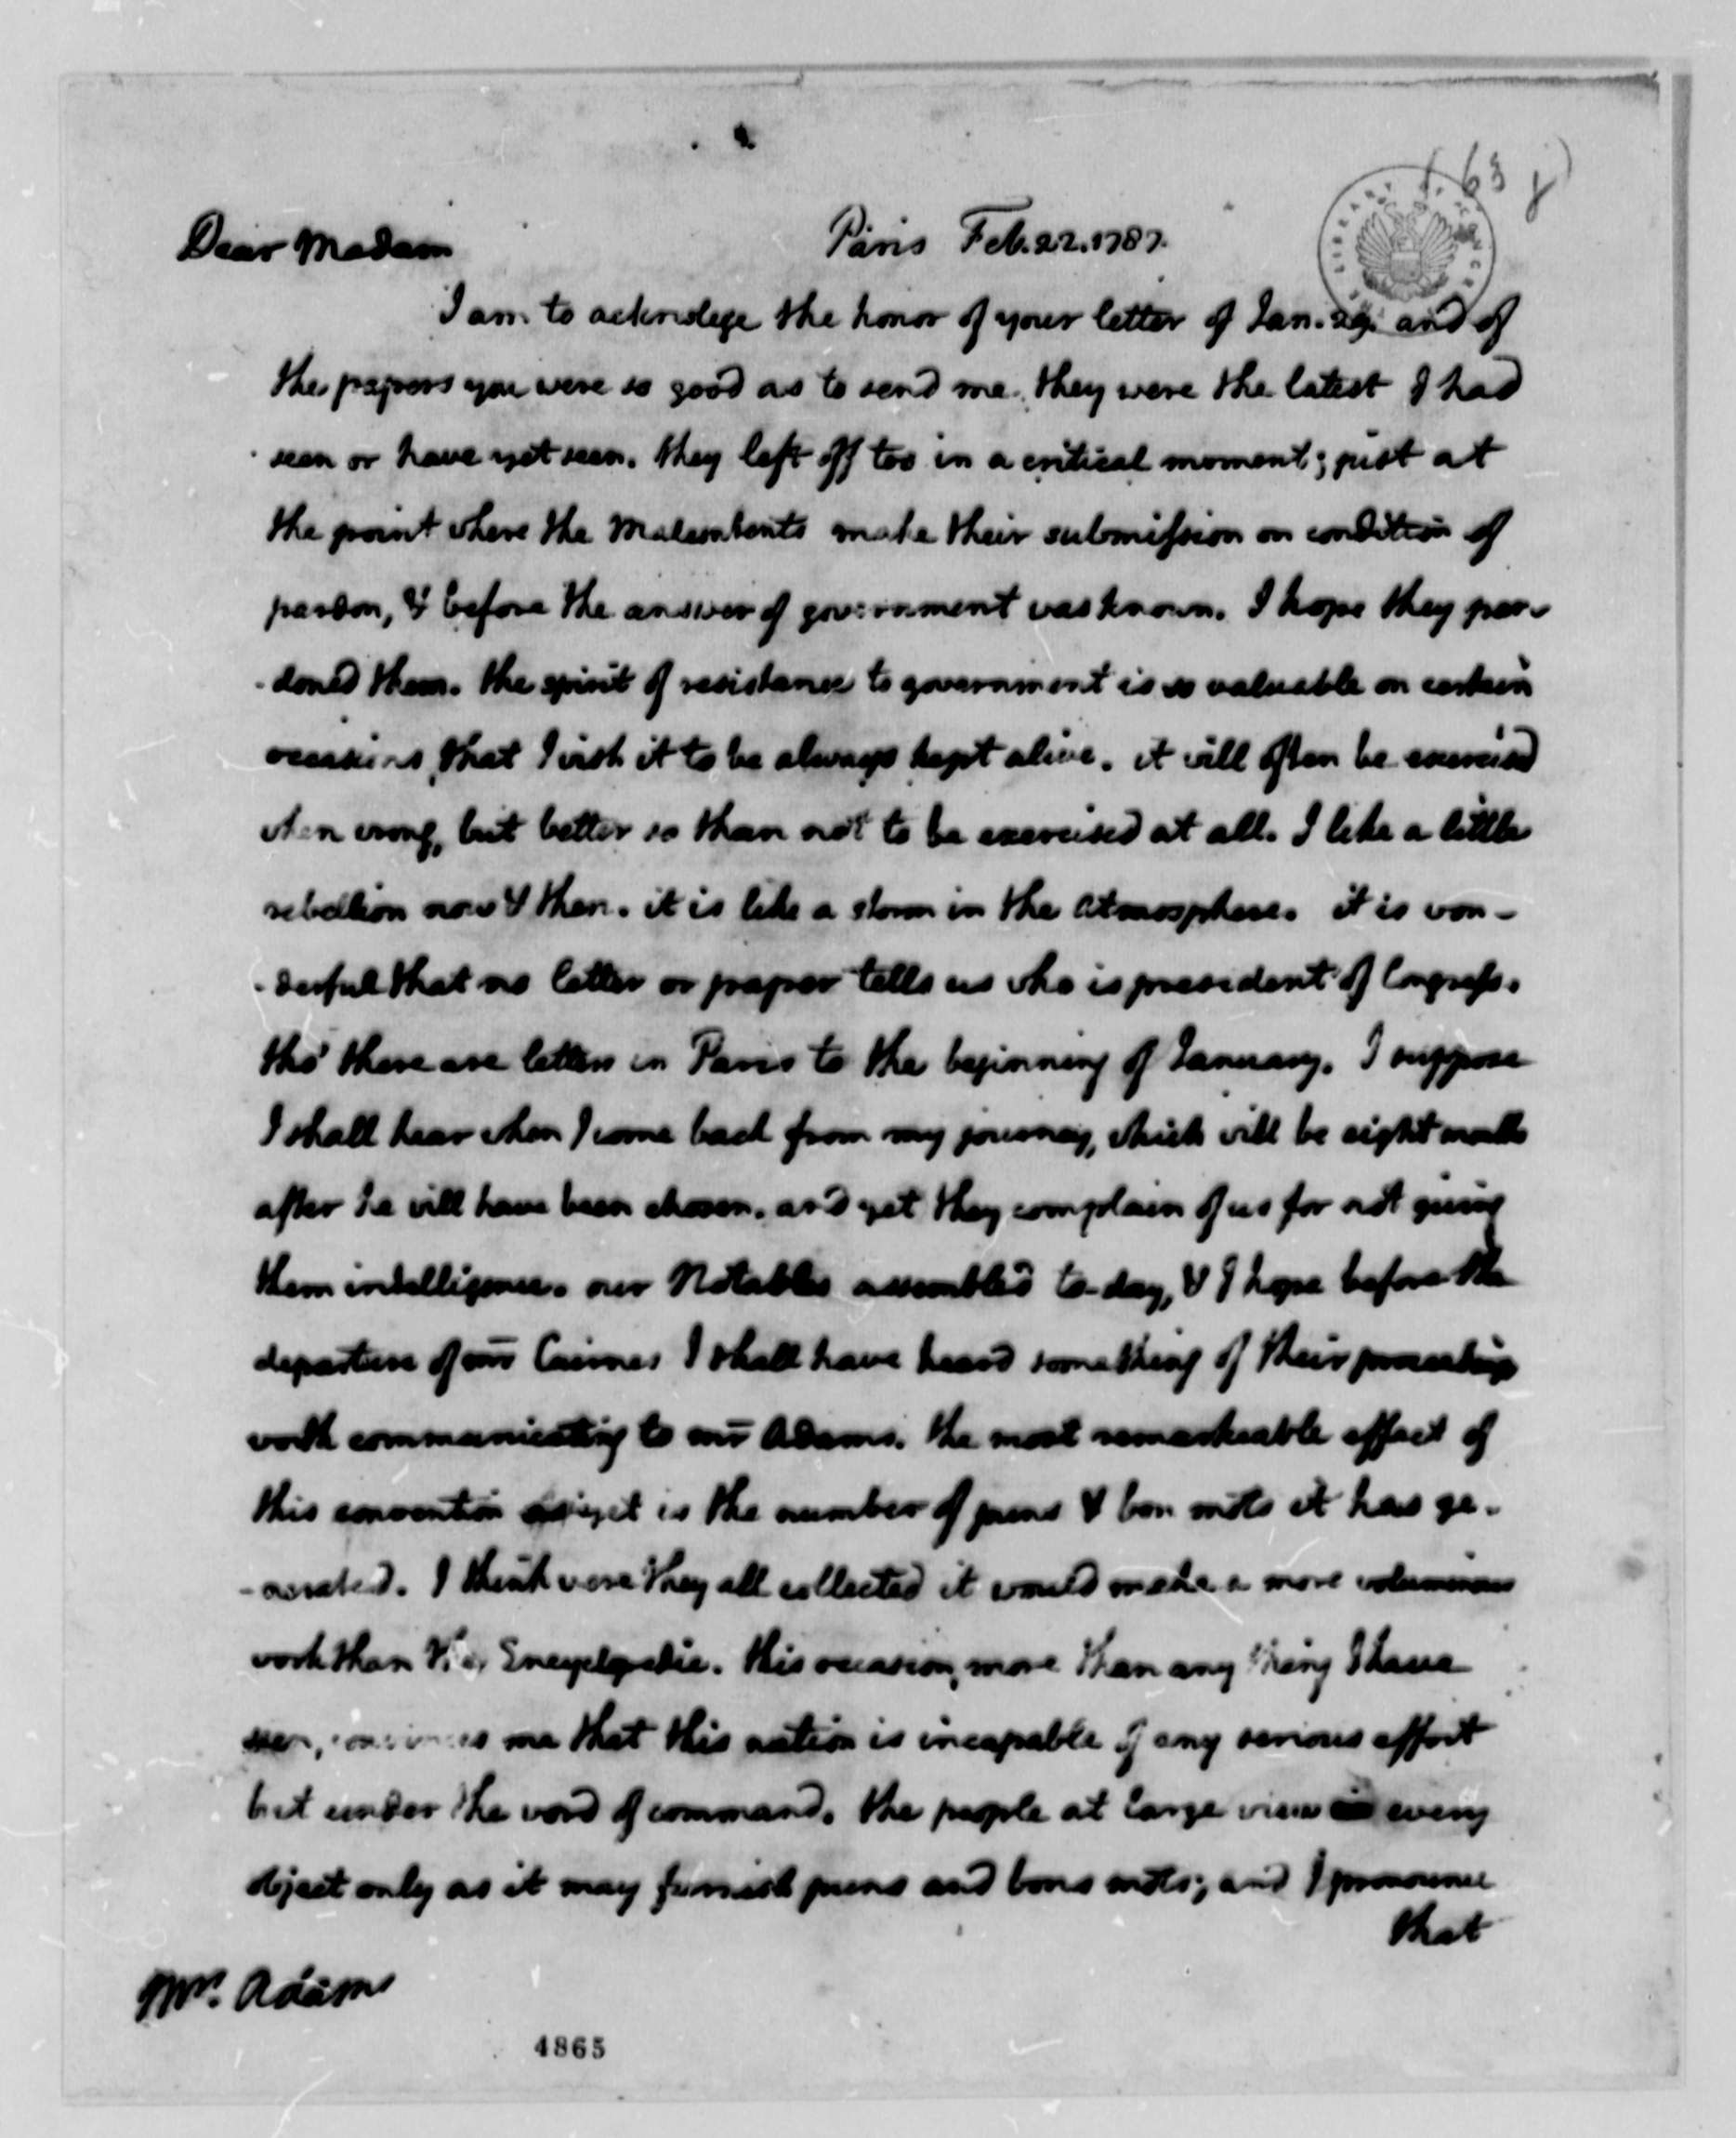 Dear Madam
Paris Feb. 22. 1787.
I am to acknolege the honor of your letter of Jan. 29. and of
the papers you were so good as to send me. they were the latest I had
seen or have yet seen. they left off too in a critical moment; just at
the point where the Malcontents make their submission on condition of
pardon, & before the answer of government was known. I hope they par-
-doned them. the spirit of resistance to government is so valuable on certain
occasions, that I wish it to be always kept alive. it will often be exercised
when wrong, but better so than not to be exercised at all. I like a little
rebellion now & then. it is like a storm in the Atmosphere. it is won-
-derful that no letter or paper tells us who is president of Congress.
tho' there are letters in Paris to the beginning of January. I suppose
I shall hear when I come back from my journey, which will be eight months
after he will have been chosen. and yet they complain of us for not giving
them intelligence. our Notables assembled to-day, & I hope before the
departure of mr Cairnes I shall have heard something of their proceedings
worth communicating to mr Adams. the most remarkeable effect of
this convention as yet is the number of puns & bon mots it has ge-
-nerated. I think were they all collected it would make a more voluminous
work than the Encyclopedie. this occasion, more than any thing I have
seen, convinces me that this nation is incapable of any serious effort
but under the word of command. the people at large view every
object only as it may furnish puns and bons mots; and I pronounce
that
Mrs. Adams
4865